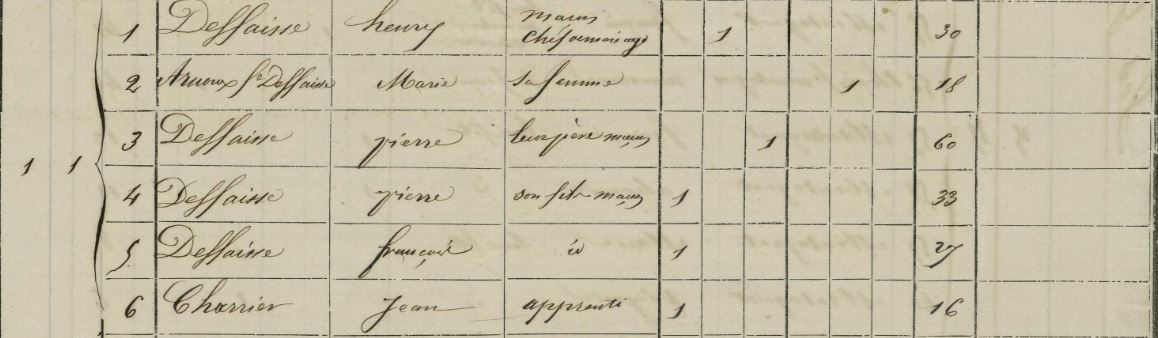 maçon
1 Deffaisse henry chef de ménage 1 30
2 Arnoux fe Deffaisse Marie sa femme 1 18
3 Deffaisse pierre leur père maçon 1 60
1 1
4 Deffaisse pierre son fils maçon 1 33
5 Deffaisse françois id 1 27
6 Charrier Jean apprenti 1 16